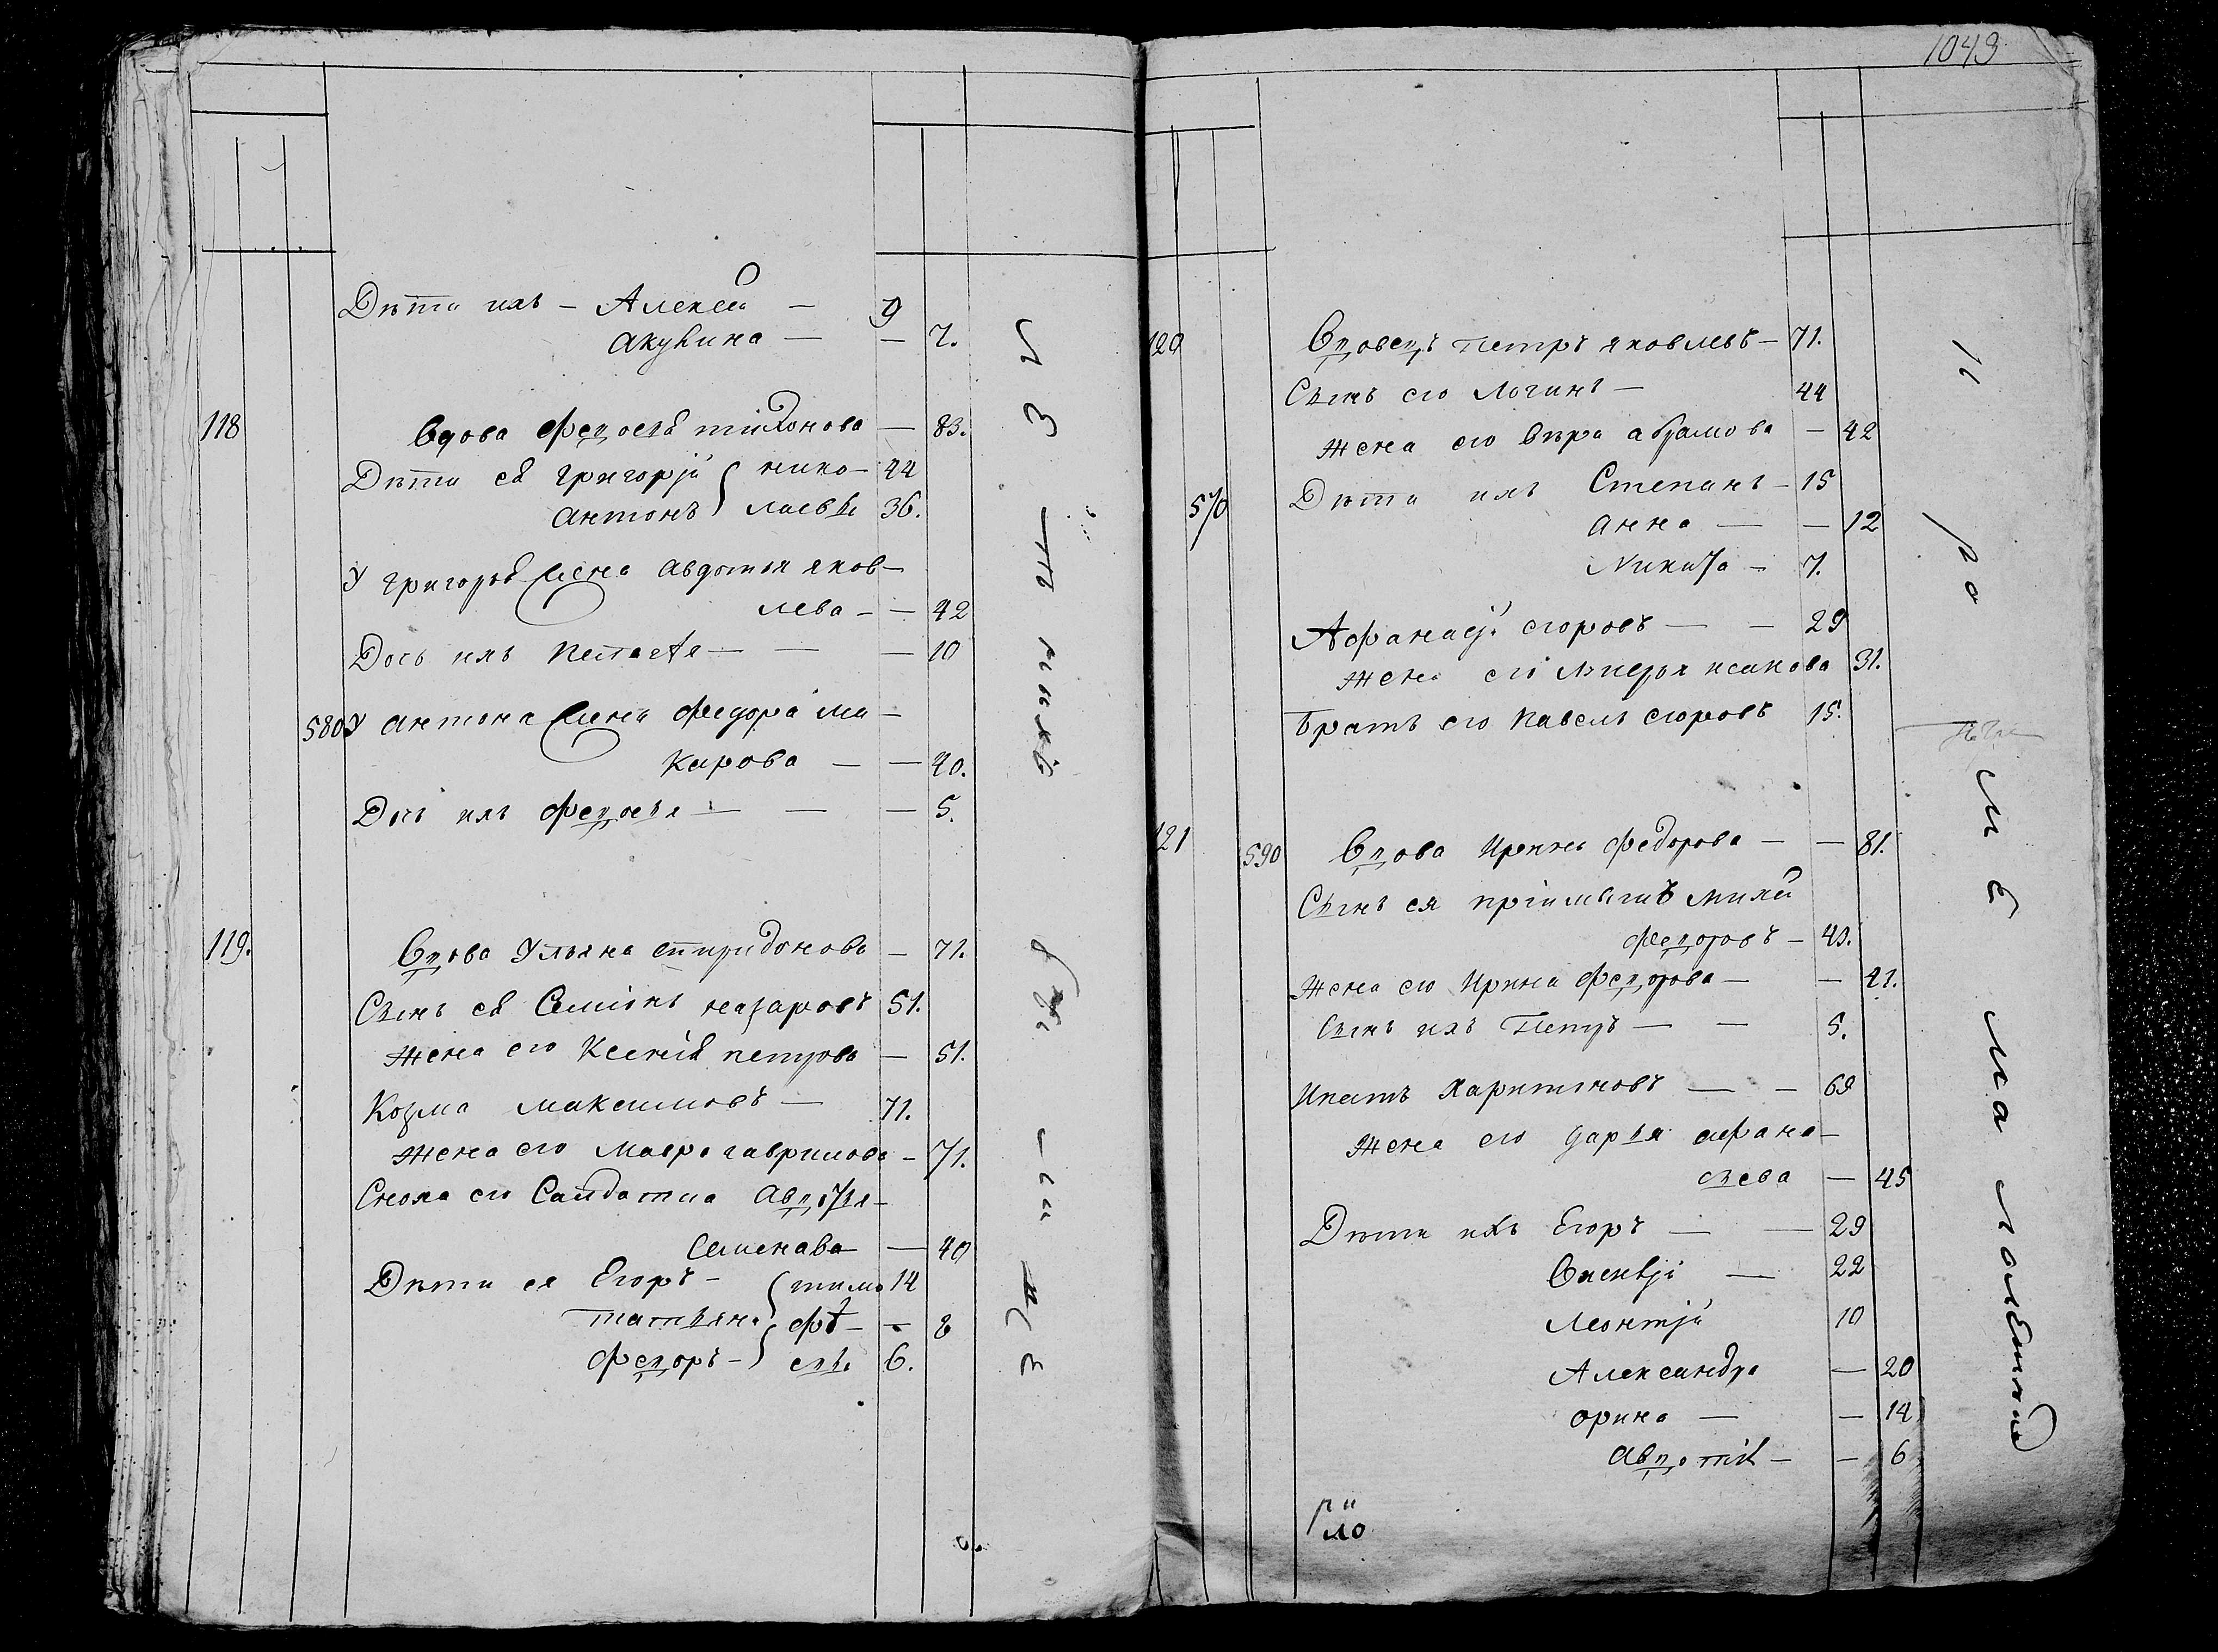 Дѣти ихъ – Алексѣй – 9
Акулина – – 7.
118 Вдова Федосья Тихонова – 83.
Дѣти ея Григорій } Нико– 44
Антонъ } лаевы 36.
У Григорья жена Авдотья Яков–
лева – – 42
Дочь ихъ Настасья – – – 10
580 У Антона жена Федора Ма–
карова – – 40.
Дочь ихъ Федосья – – – 5.
119. Вдова Ульяна Спиридонова – 71.
Сынъ ея Семіонъ Назаровъ 51.
Жена его Ксенія Петрова – 51.
Козма Максимовъ – 71.
Жена его Мавра Гаврилова – 71.
Сноха его Салдатка Авдотья
Семенава – 40
Дѣти ея Егоръ – } Тимо 14
Татьяна } фѣ – – 8
Федоръ – } евы 6.
1043
120 Вдовецъ Петръ Яковлевъ – 71.
Сынъ его Логинъ – 44
Жена его Вѣра Абрамова – 42
570 Дѣти ихъ Степанъ – 15
Анна – – 12
Никита – 7.
Афанасій Егоровъ – – 29
Жена его Лукерья Исакова 31.
Братъ его Павелъ Егоровъ 15.
121 590 Вдова Ирина Федорова – – 81.
Сынъ ея пріимышъ Михей
Федоровъ – 43.
Жена его Ирина Федорова – – 41.
Сынъ ихъ Петръ – – 5.
Ипатъ Харитоновъ – – 69
Жена его Дарья Афана–
сьева – 45
Дѣти ихъ Егоръ – – 29
Василій – 22
Леонтій 10
Александра – 20
Орина – – 14
Авдотья – – 6